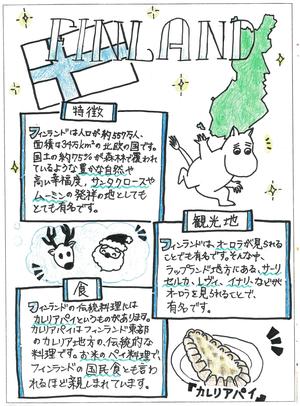 FINLAND
特徴
フィンランドは人口が約557万人、
面積は34万km²の北欧の国です。
国土の約75%が森林で覆われ
ているような豊かな自然や
高い幸福度、サンタクロースや
ムーミンの発祥の地としても
とても有名です。
観光地
フィンランドは、オーロラが見られる
ことでも有名です。そんな中、
ラップランド地方にある、サーリ
セルカ、レヴィ、イナリ、などが
オーロラを見られることで、
有名です。
食
フィンランドの伝統料理には
カレリアパイというものがあります。
カレリアパイはフィンランド東部
のカレリア地方の、伝統的な
料理です。お米のパイ料理で、
フィンランドの国民食とも言わ
れるほど親しまれています。
『カレリアパイ』